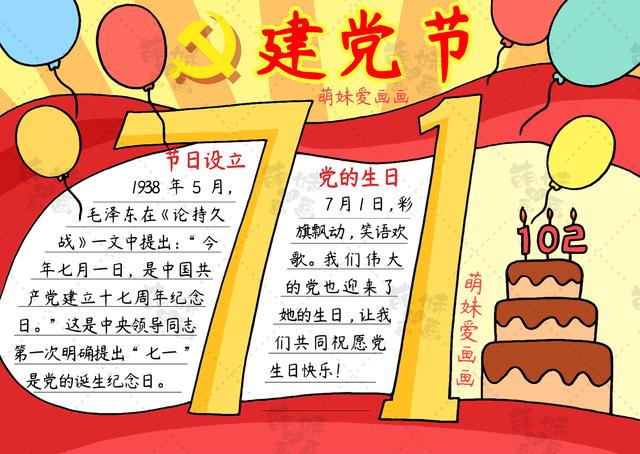 建党节
萌妹爱画画
71
节日设立
1938 年 5 月，
毛泽东在《论持久
战》一文中提出：“今
年七月一日，是中国共
产党建立十七周年纪念
日。”这是中央领导同志
第一次明确提出“七一”
是党的诞生纪念日。
党的生日
7月1日，彩
旗飘动，笑语欢
歌。我们伟大
的党也迎来了
她的生日，让我
们共同祝愿党
生日快乐！
102
萌妹爱画画